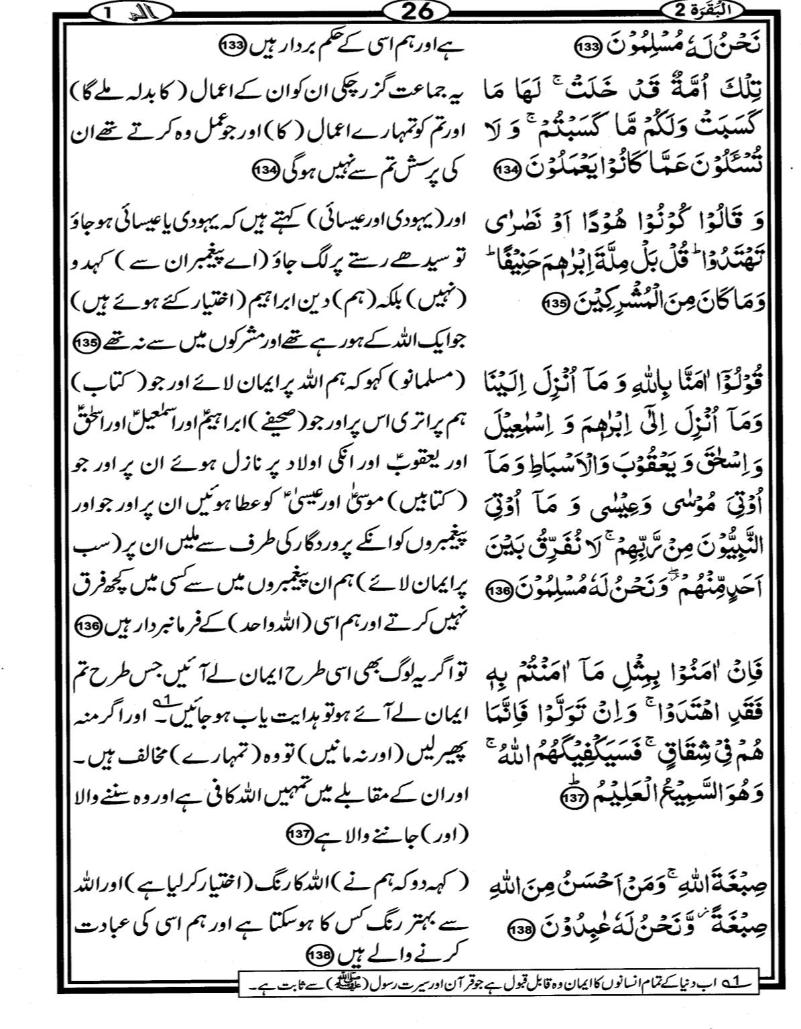 الٓمّٓ 1
26
اَلْبَقَرَة 2
نَحْنُ لَهٗ مُسْلِمُوْنَ 133
تِلْكَ اُمَّةٌ قَدْ خَلَتْ ۚ لَهَا مَا
كَسَبَتْ وَلَكُمْ مَّا كَسَبْتُمْ ۚ وَ لَا
تُسْـَٔلُوْنَ عَمَّا كَانُوْا يَعْمَلُوْنَ 134
وَ قَالُوْا كُوْنُوْا هُوْدًا اَوْ نَصٰرٰى
تَهْتَدُوْا ؕ قُلْ بَلْ مِلَّةَ اِبْرٰهٖمَ حَنِيْفًا ؕ
وَمَا كَانَ مِنَ الْمُشْرِكِيْنَ 135
قُوْلُوْٓا اٰمَنَّا بِاللّٰهِ وَ مَآ اُنْزِلَ اِلَيْنَا
وَمَآ اُنْزِلَ اِلٰٓى اِبْرٰهٖمَ وَ اِسْمٰعِيْلَ
وَاِسْحٰقَ وَ يَعْقُوْبَ وَالْاَسْبَاطِ وَ مَآ
اُوْتِيَ مُوْسٰى وَعِيْسٰى وَ مَآ اُوْتِيَ
النَّبِيُّوْنَ مِنْ رَّبِّهِمْ ۚ لَا نُفَرِّقُ بَيْنَ
اَحَدٍ مِّنْهُمْ ۖ وَنَحْنُ لَهٗ مُسْلِمُوْنَ 136
فَاِنْ اٰمَنُوْا بِمِثْلِ مَآ اٰمَنْتُمْ بِهٖ
فَقَدِ اهْتَدَوْا ۚ وَاِنْ تَوَلَّوْا فَاِنَّمَا
هُمْ فِيْ شِقَاقٍ ۚ فَسَيَكْفِيْكَهُمُ اللّٰهُ ۚ
وَهُوَ السَّمِيْعُ الْعَلِيْمُ ؕ 137
صِبْغَةَ اللّٰهِ ۚ وَمَنْ اَحْسَنُ مِنَ اللّٰهِ
صِبْغَةً ۡ وَّنَحْنُ لَهٗ عٰبِدُوْنَ 138
ہے اور ہم اسی کے حکم بردار ہیں 133
یہ جماعت گزر چکی ان کو ان کے اعمال (کا بدلہ ملے گا)
اور تم کو تمہارے اعمال (کا) اور جو عمل وہ کرتے تھے ان
کی پرسش تم سے نہیں ہوگی 134
اور (یہودی اور عیسائی) کہتے ہیں کہ یہودی یا عیسائی ہو جاؤ
تو سیدھے رستے پر لگ جاؤ (اے پیغمبر ان سے) کہدو
(نہیں) بلکہ (ہم) دین ابراہیم (اختیار کئے ہوئے ہیں)
جو ایک اللہ کے ہو رہے تھے اور مشرکوں میں سے نہ تھے 135
(مسلمانو) کہو کہ ہم اللہ پر ایمان لائے اور جو (کتاب)
ہم پر اتری اس پر اور جو (صحیفے) ابراہیمؑ اور اسمٰعیلؑ اور اسحٰقؑ
اور یعقوبؑ اور انکی اولاد پر نازل ہوئے ان پر اور جو
(کتابیں) موسیٰؑ اور عیسیٰؑ کو عطا ہوئیں ان پر اور جو اور
پیغمبروں کو انکے پروردگار کی طرف سے ملیں ان پر (سب
پر ایمان لائے) ہم ان پیغمبروں میں سے کسی میں کچھ فرق
نہیں کرتے اور ہم اسی (اللہ واحد) کے فرمانبردار ہیں 136
تو اگر یہ لوگ بھی اسی طرح ایمان لے آئیں جس طرح تم
ایمان لے آئے ہو تو ہدایت یاب ہو جائیں۔ 1؎ اور اگر منہ
پھیر لیں (اور نہ مانیں) تو وہ (تمہارے) مخالف ہیں۔
اور ان کے مقابلے میں تمہیں اللہ کافی ہے اور وہ سننے والا
(اور) جاننے والا ہے 137
(کہہ دو کہ ہم نے) اللہ کا رنگ (اختیار کر لیا ہے) اور اللہ
سے بہتر رنگ کس کا ہو سکتا ہے اور ہم اسی کی عبادت
کرنے والے ہیں 138
1؎ اب دنیا کے تمام انسانوں کا ایمان وہ قابل قبول ہے جو قرآن اور سیرت رسول (ﷺ) سے ثابت ہے۔